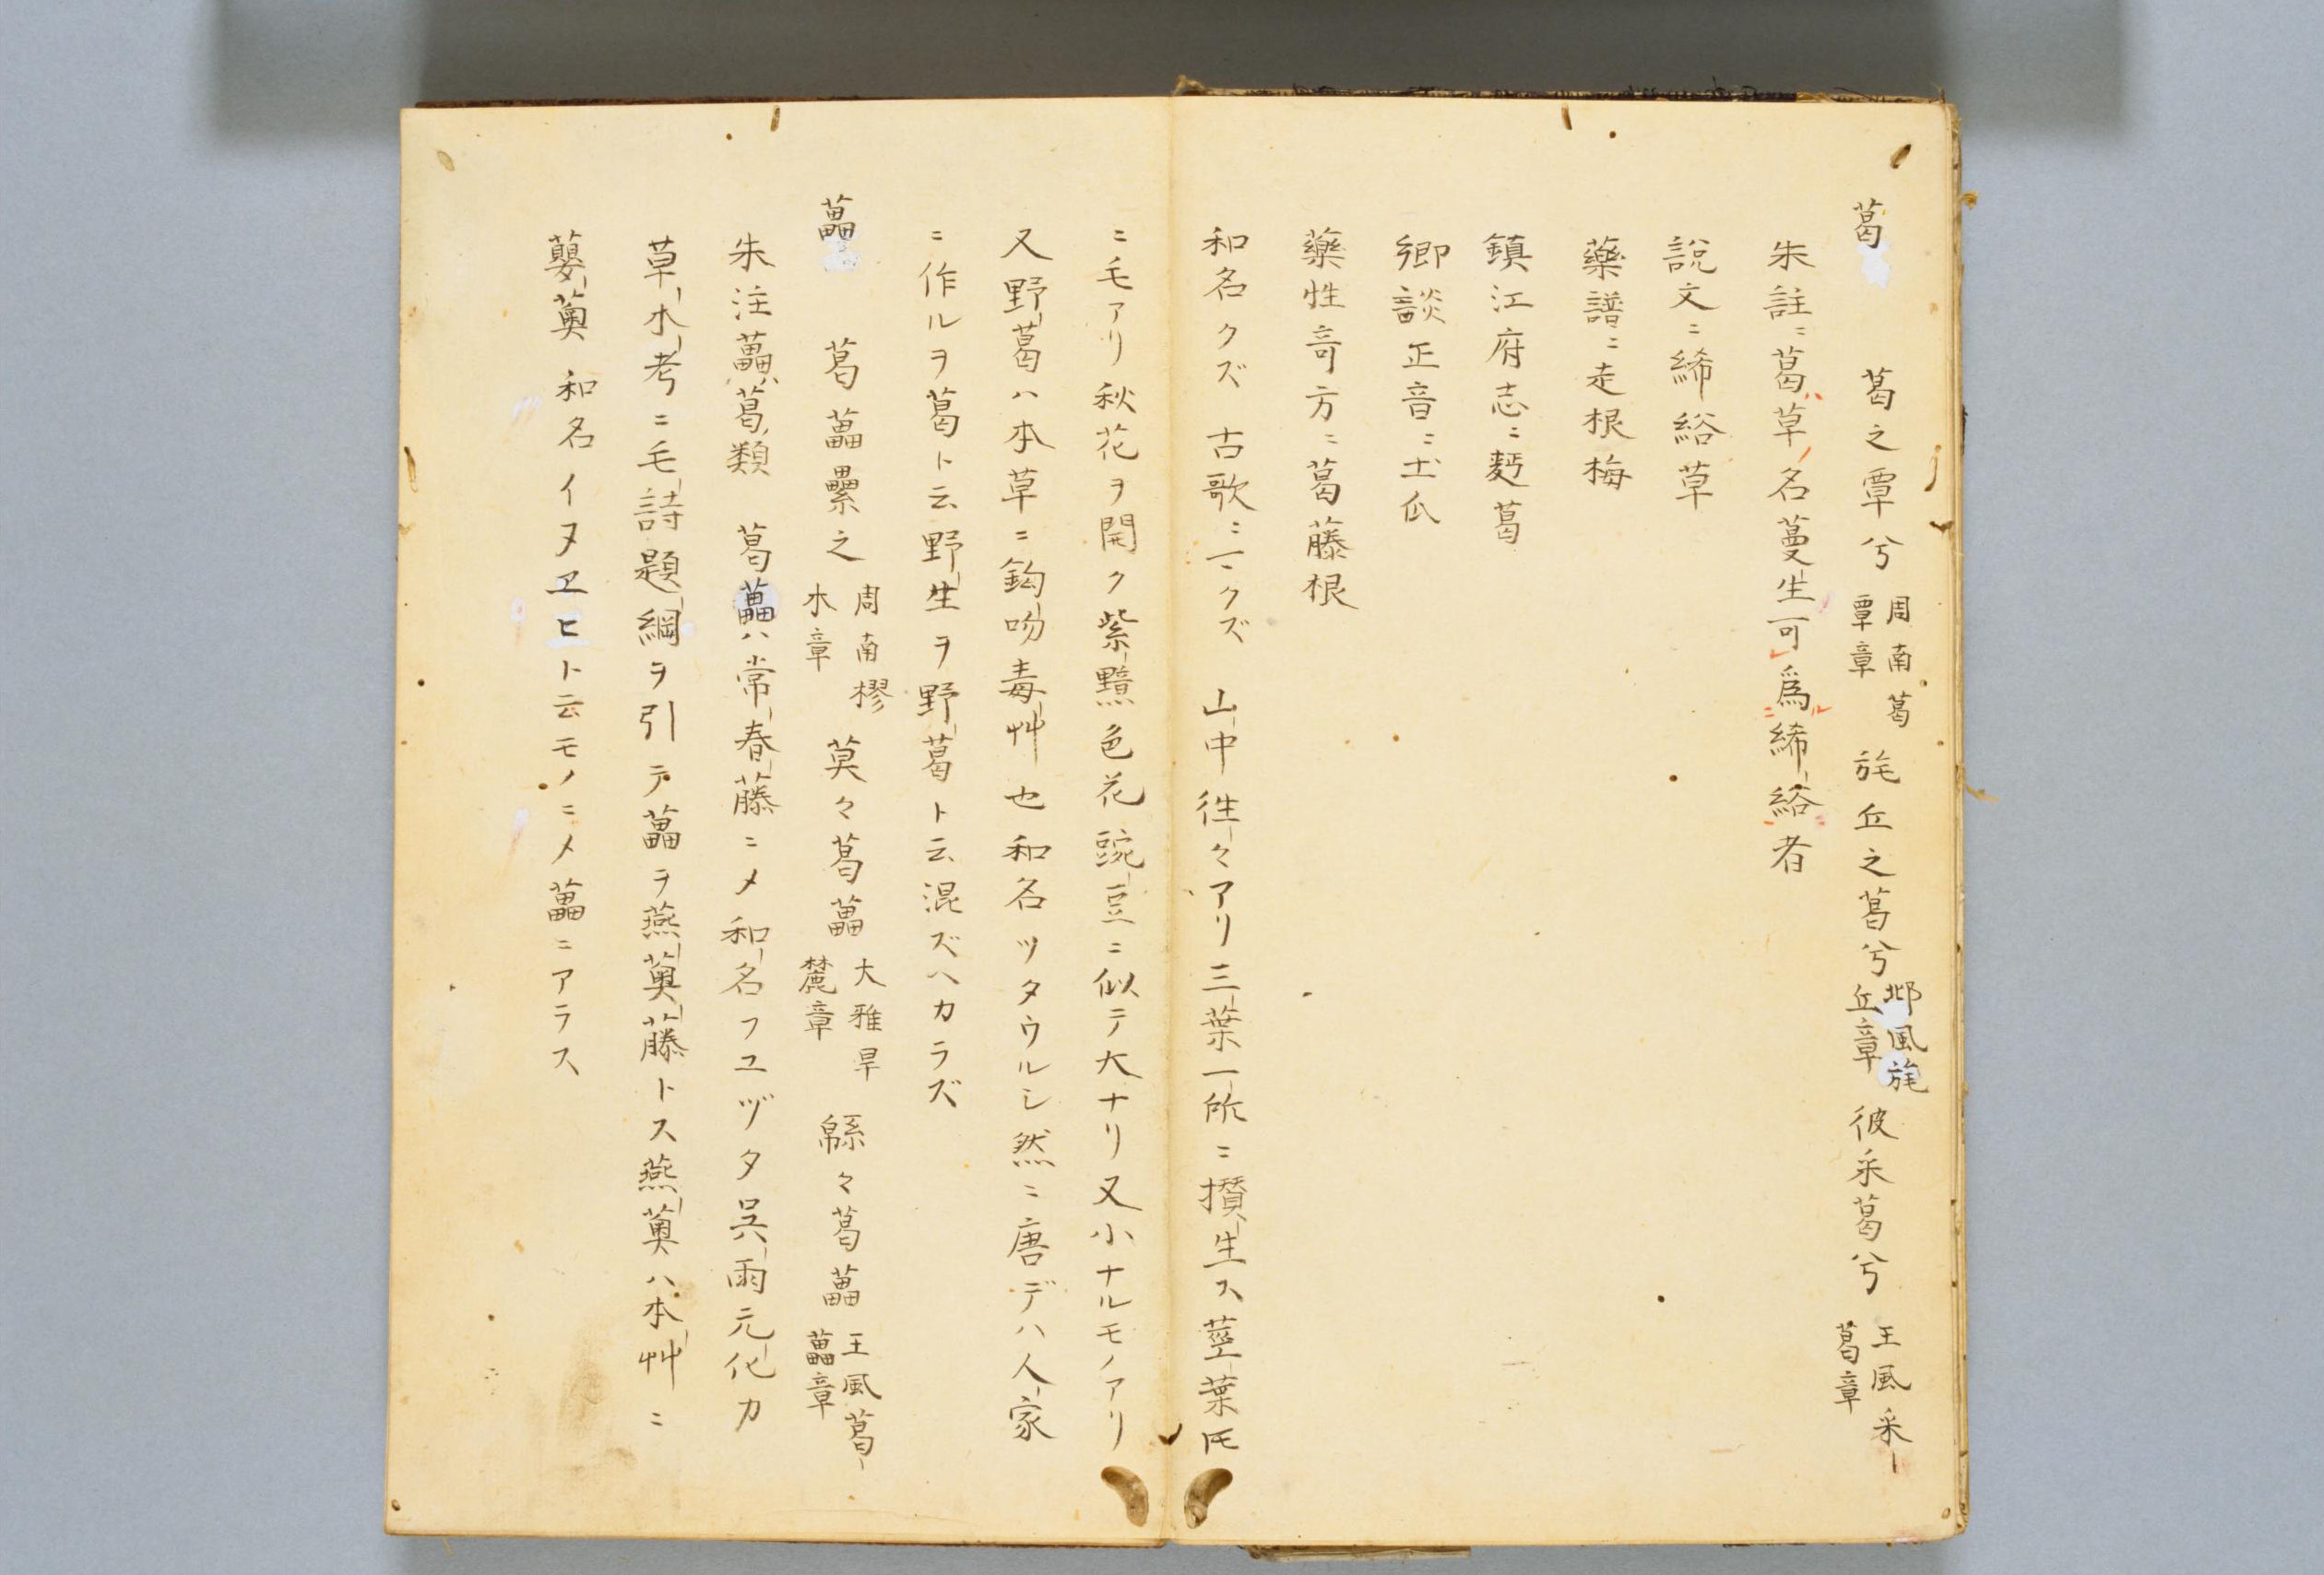 葛　葛之覃兮 周南葛覃章 旄丘之葛兮 邶風旄丘章 彼采葛兮 王風采葛章
朱註ニ葛草名蔓生可爲絺綌者
說文ニ絺綌草
藥譜ニ走根梅
鎮江府志ニ麪葛
鄉談正音ニ土瓜
藥性奇方ニ葛藤根
和名クズ 古歌ニマクズ 山中徃々アリ三葉一所ニ攅生ス莖葉𪜈
ニ毛アリ秋花ヲ開ク紫黯色花豌豆ニ似テ大ナリ又小ナルモノアリ
又野葛ハ本草ニ鈎吻毒艸也和名ツタウルシ然ニ唐デハ人家
ニ作ルヲ葛ト云野生ヲ野葛ト云混ズヘカラズ
藟　葛藟纍之 周南樛木章 莫々葛藟 大雅旱麓章 緜々葛藟 王風葛藟章
朱注藟葛類 葛藟ハ常春藤ニメ和名フユヅタ呉雨元化カ
草木考ニ毛詩題綱ヲ引テ藟ヲ燕薁藤トス燕薁ハ本艸ニ
蘡薁 和名イヌヱヒト云モノニメ藟ニアラス